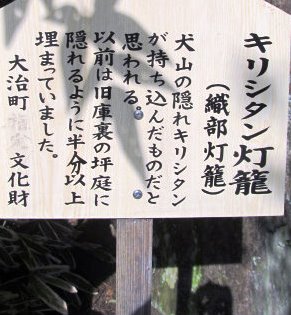 キリシタン灯籠
（織部灯籠）
犬山の隠れキリシタン
が持ち込んだものだと
思われる。
以前は旧庫裏の坪庭に
隠れるように半分以上
埋まっていました。
大治町 指定 文化財